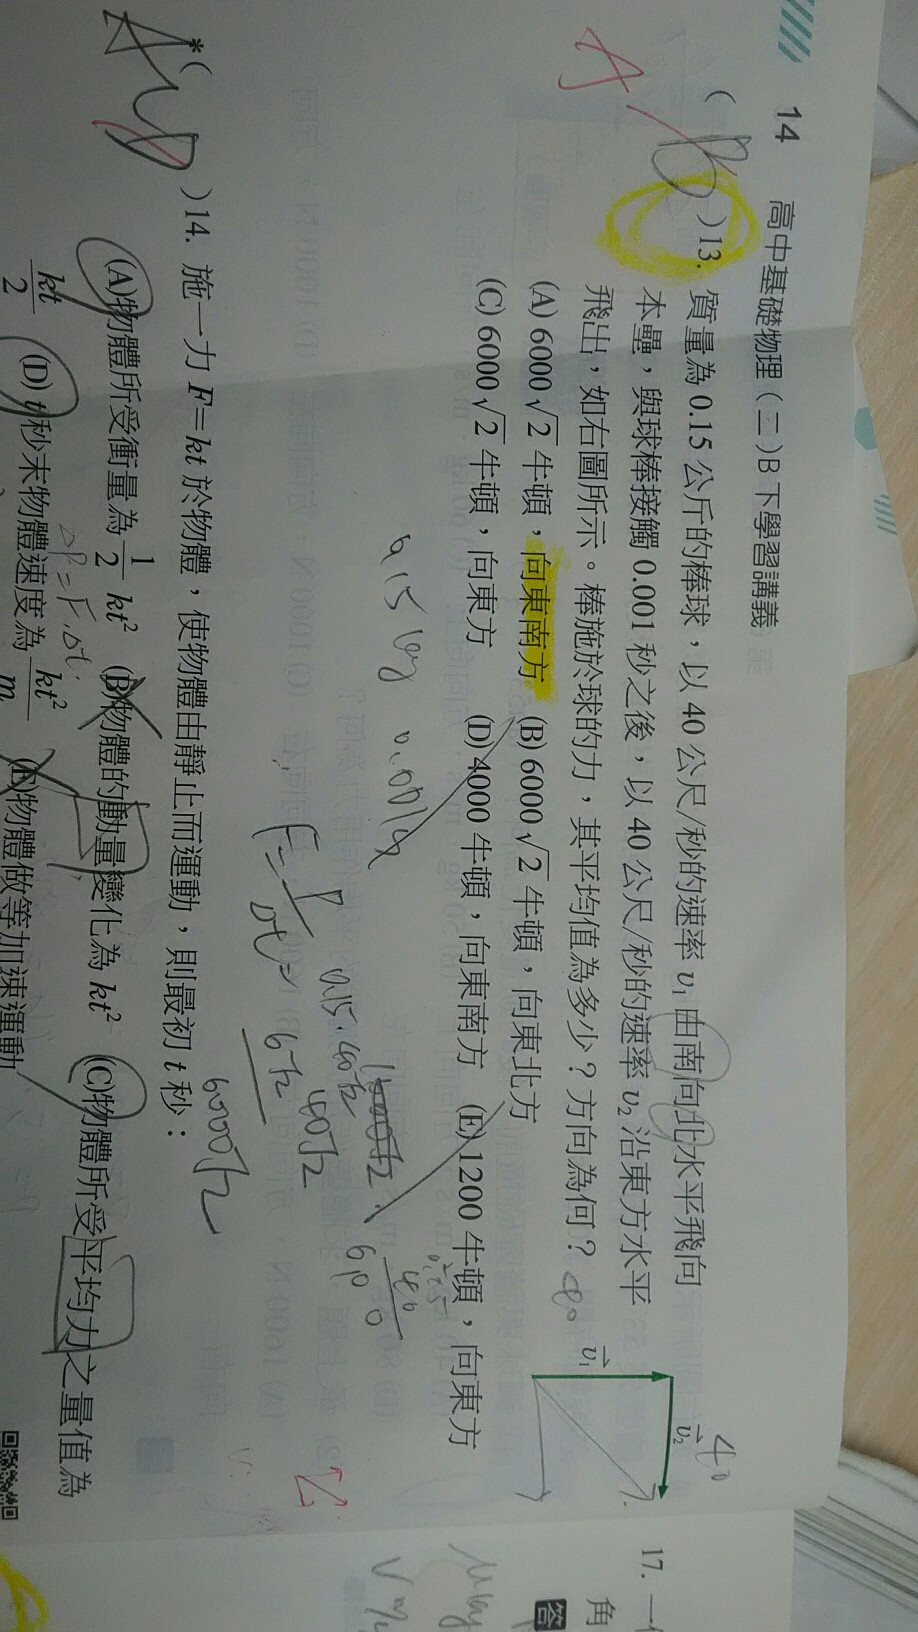 14 高中基礎物理(二)B下學習講義
( B )13. 質量為 0.15 公斤的棒球,以 40 公尺/秒的速率 v₁ 由南向北水平飛向
本壘,與球棒接觸 0.001 秒之後,以 40 公尺/秒的速率 v₂ 沿東方水平
飛出,如右圖所示。棒施於球的力,其平均值為多少?方向為何?
(A) 6000√2 牛頓,向東南方 (B) 6000√2 牛頓,向東北方
(C) 6000√2 牛頓,向東方 (D) 4000 牛頓,向東南方 (E) 1200 牛頓,向東方
A
40
40
v₁
v₂
0.15 kg
F = P/Δt =
0.15.40√2
40√2
6√2
6000√2
*( )14. 施一力 F=kt 於物體,使物體由靜止而運動,則最初 t 秒:
(A)物體所受衝量為 1/2 kt² (B)物體的動量變化為 kt² (C)物體所受平均力之量值為
ΔP=F.Δt
kt/2 (D) t 秒末物體速度為 kt²/m (E)物體做等加速運動
17. 一
角
答